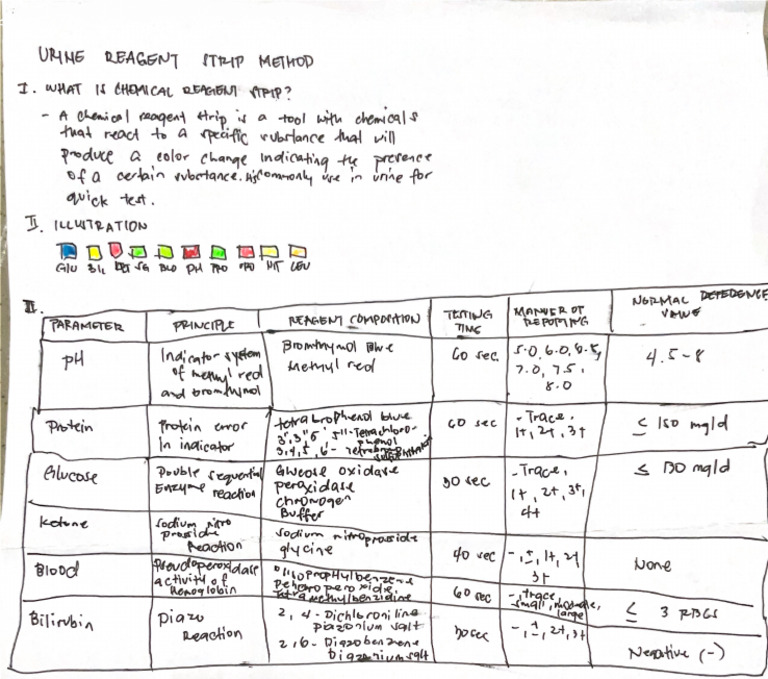 URINE REAGENT STRIP METHOD
I. WHAT IS CHEMICAL REAGENT STRIP?
- A chemical reagent strip is a tool with chemicals
that react to a specific substance that will
produce a color change indicating the presence
of a certain substance. commonly use in urine for
quick test.
II. ILLUSTRATION
GLU BIL KET SG BLD PH PRO NIT LEU
III.
PARAMETER PRINCIPLE REAGENT COMPOSITION TESTING TIME MANNER OF REPORTING NORMAL VALUE
pH
Indicator system
of methyl red
and bromthymol
Bromthymol Blue
Methyl red
60 sec.
5.0, 6.0, 6.5,
7.0, 7.5,
8.0
4.5-8
Protein
Protein error
in indicator
tetrabrophenol blue
60 sec
- Trace,
1+, 2+, 3+
≤ 150 mg/d
Glucose
Double sequential
Enzyme reaction
Glucose oxidase
peroxidase
chronogen
Buffer
30 sec
- Trace,
1+, 2+, 3+,
4+
≤ 130 mg/d
Ketone
Sodium nitro
prosside
Reaction
Sodium nitroprosside
glycine
40 sec
-, ±, 1+, 2+
3+
None
Blood
Pseudoperoxidase
activity of
hemoglobin
60 sec
-, trace,
small, moderate,
large
≤ 3 RBCS
Bilirubin
Diazo
Reaction
2, 4 - Dichloroniline
Diazonium salt
2, 6 - Diazobenzene
Diazonium salt
30 sec
Negative (-)